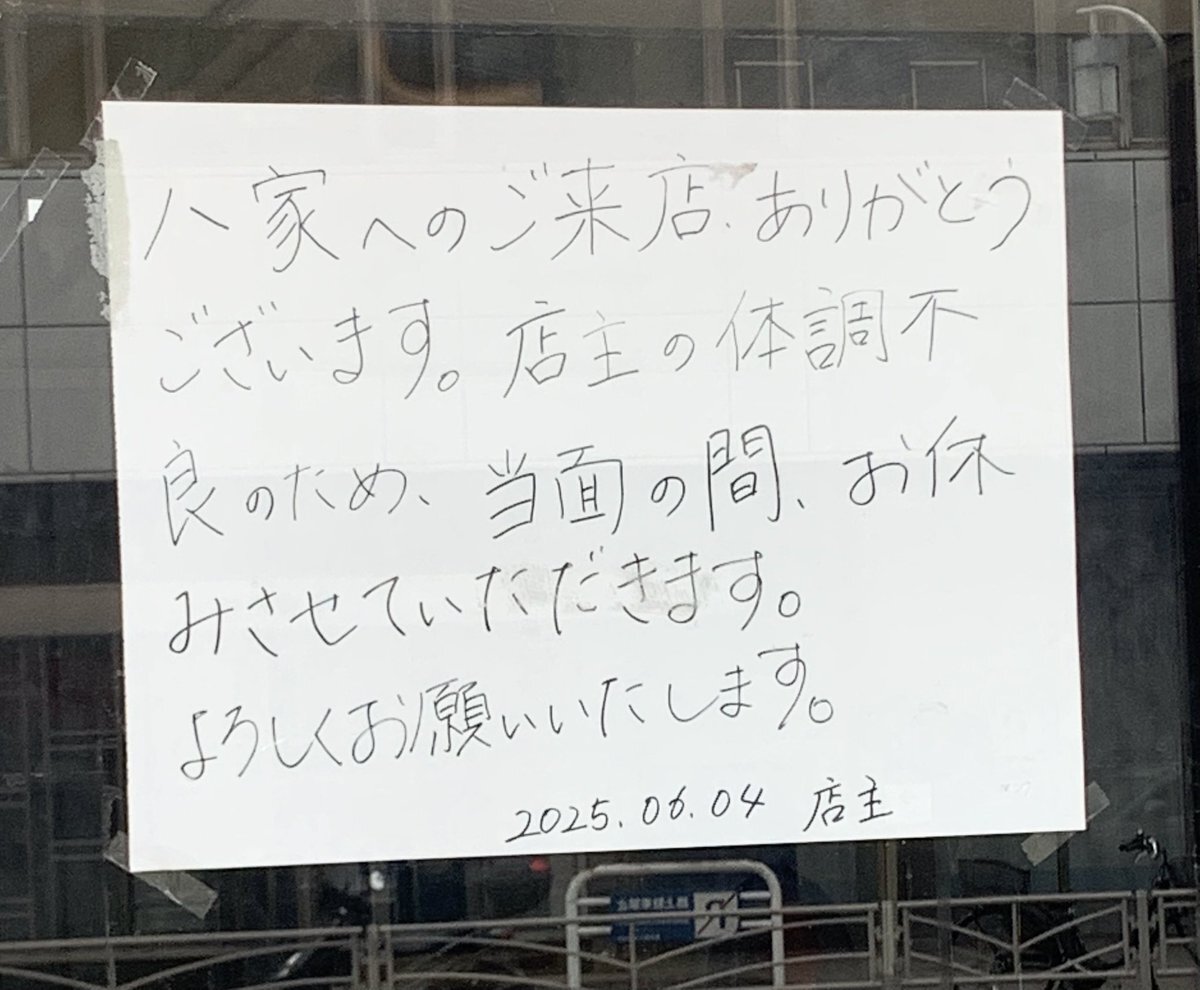 八家へのご来店、ありがとう
ございます。店主の体調不
良のため、当面の間、お休
みさせていただきます。
よろしくお願いいたします。
2025.06.04 店主